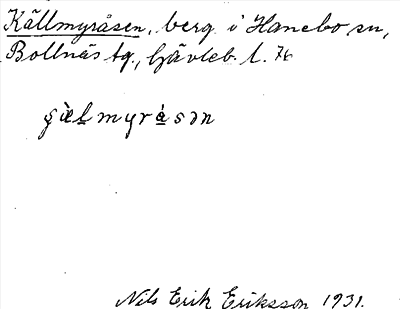 Källmyråsen, berg i Hanebo sn,
Bollnäs tg., Gävleb. l. 76
ç̀æ̀ḷmyrásən
Nils Erik Eriksson 1931.